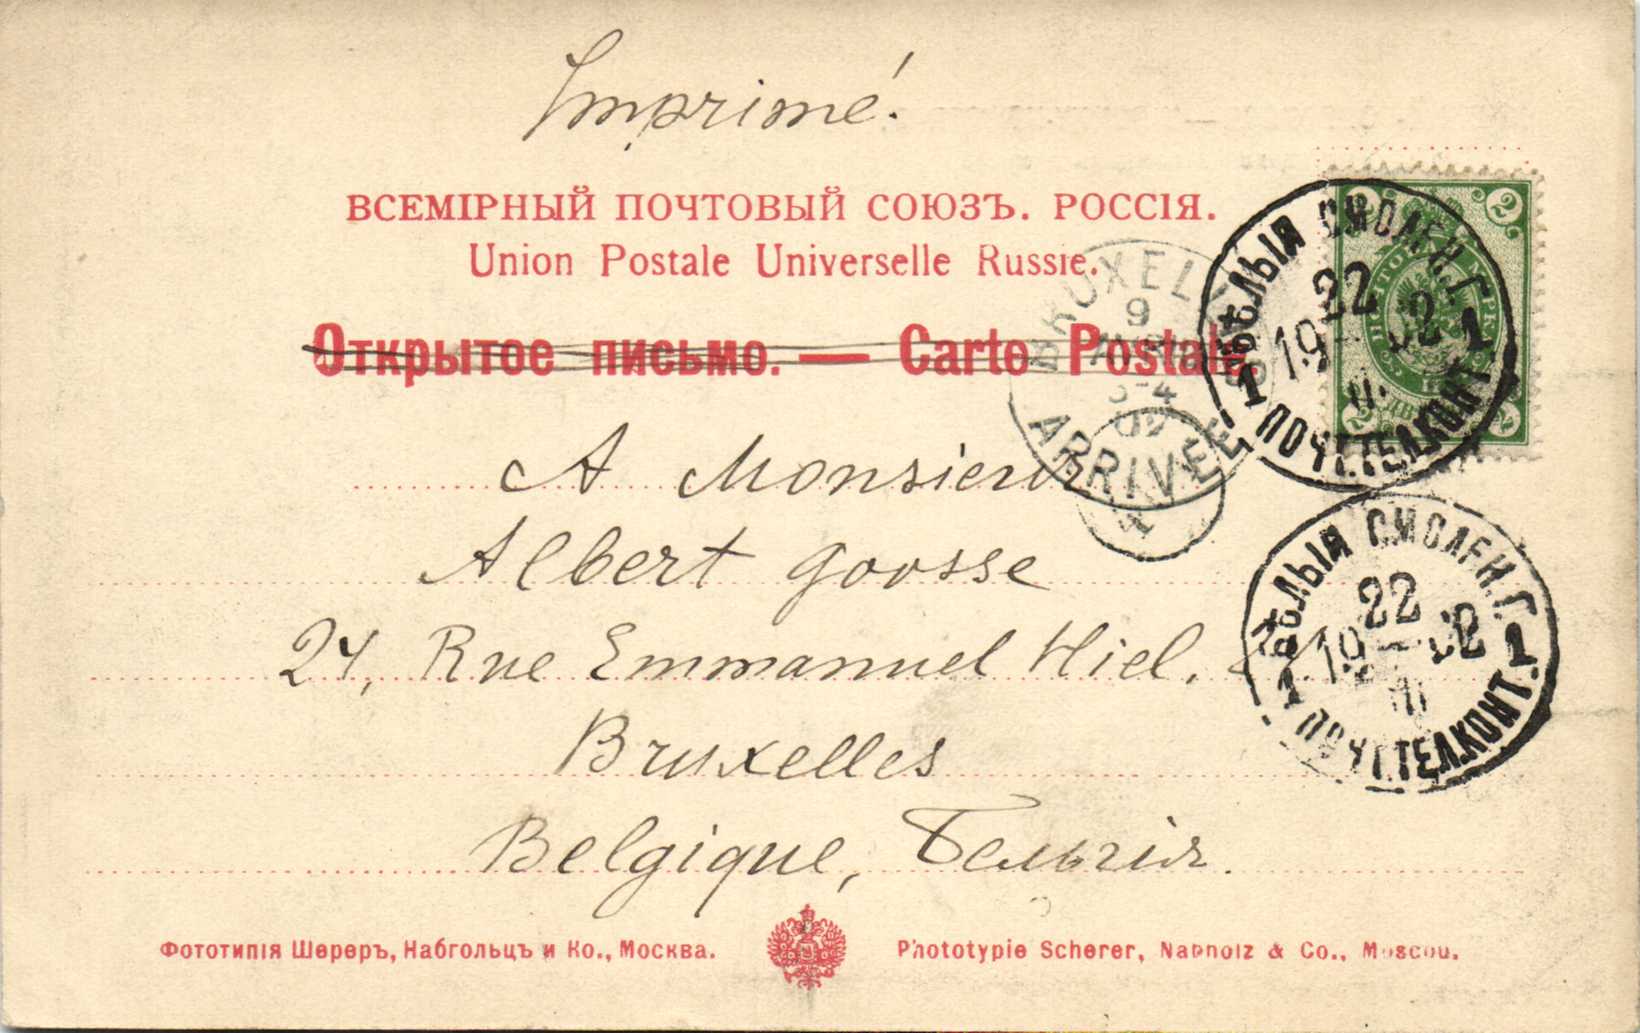 Imprimé.
ВСЕМІРНЫЙ ПОЧТОВЫЙ СОЮЗЪ. РОССІЯ.
Union Postale Universelle Russie.
Открытое письмо. — Carte Postale.
BRUXELLES
9
ARRIVÉE
4
2 2
БѢЛЫЯ СМОЛЕН.Г.
22
19 02
1 1
ПОЧТ.ТЕЛ.КОНТ.
A Monsieur
Albert Goosse
24, Rue Emmanuel Hiel,
Bruxelles
Belgique, Бельгія.
БѢЛЫЯ СМОЛЕН.Г.
22
19 02
1 1
ПОЧТ.ТЕЛ.КОНТ.
Фототипія Шереръ, Набгольцъ и Ко., Москва.
Phototypie Scherer, Nabholz & Co., Moscou.